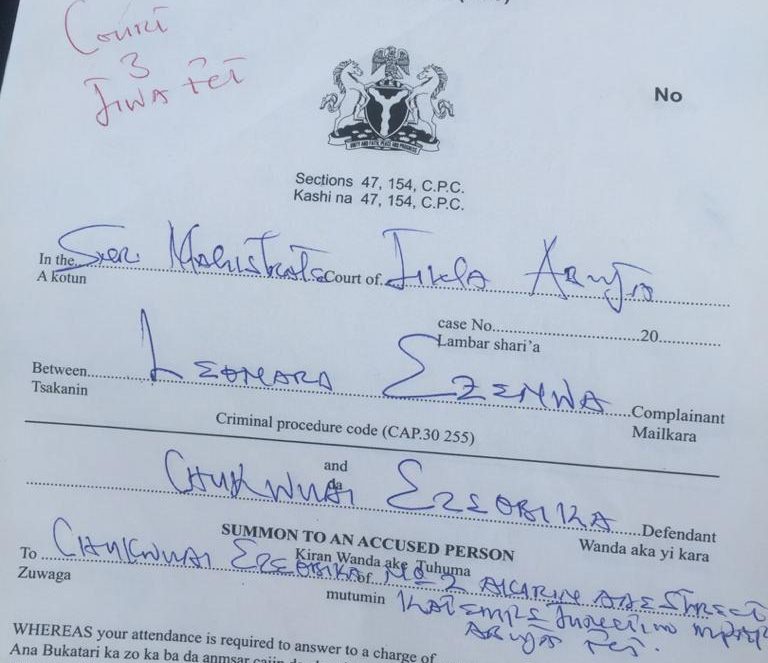 Court
3
Jiwa FCT
No
UNITY AND FAITH, PEACE AND PROGRESS
Sections 47, 154, C.P.C.
Kashi na 47, 154, C.P.C.
In the Senior Magistrate Court of Jiwa Abuja
A kotun
case No. 20
Lambar shari'a
Between Leonard Ezenwa Complainant
Tsakanin Mailkara
Criminal procedure code (CAP.30 255)
and
da
Chukwudi Ezeobika Defendant
Wanda aka yi kara
SUMMON TO AN ACCUSED PERSON
Kiran Wanda ake Tuhuma
To Chukwudi Ezeobika of No 2 Street
Zuwaga mutumin Junction
Abuja FCT.
WHEREAS your attendance is required to answer to a charge of
Ana Bukatari ka zo ka ba da